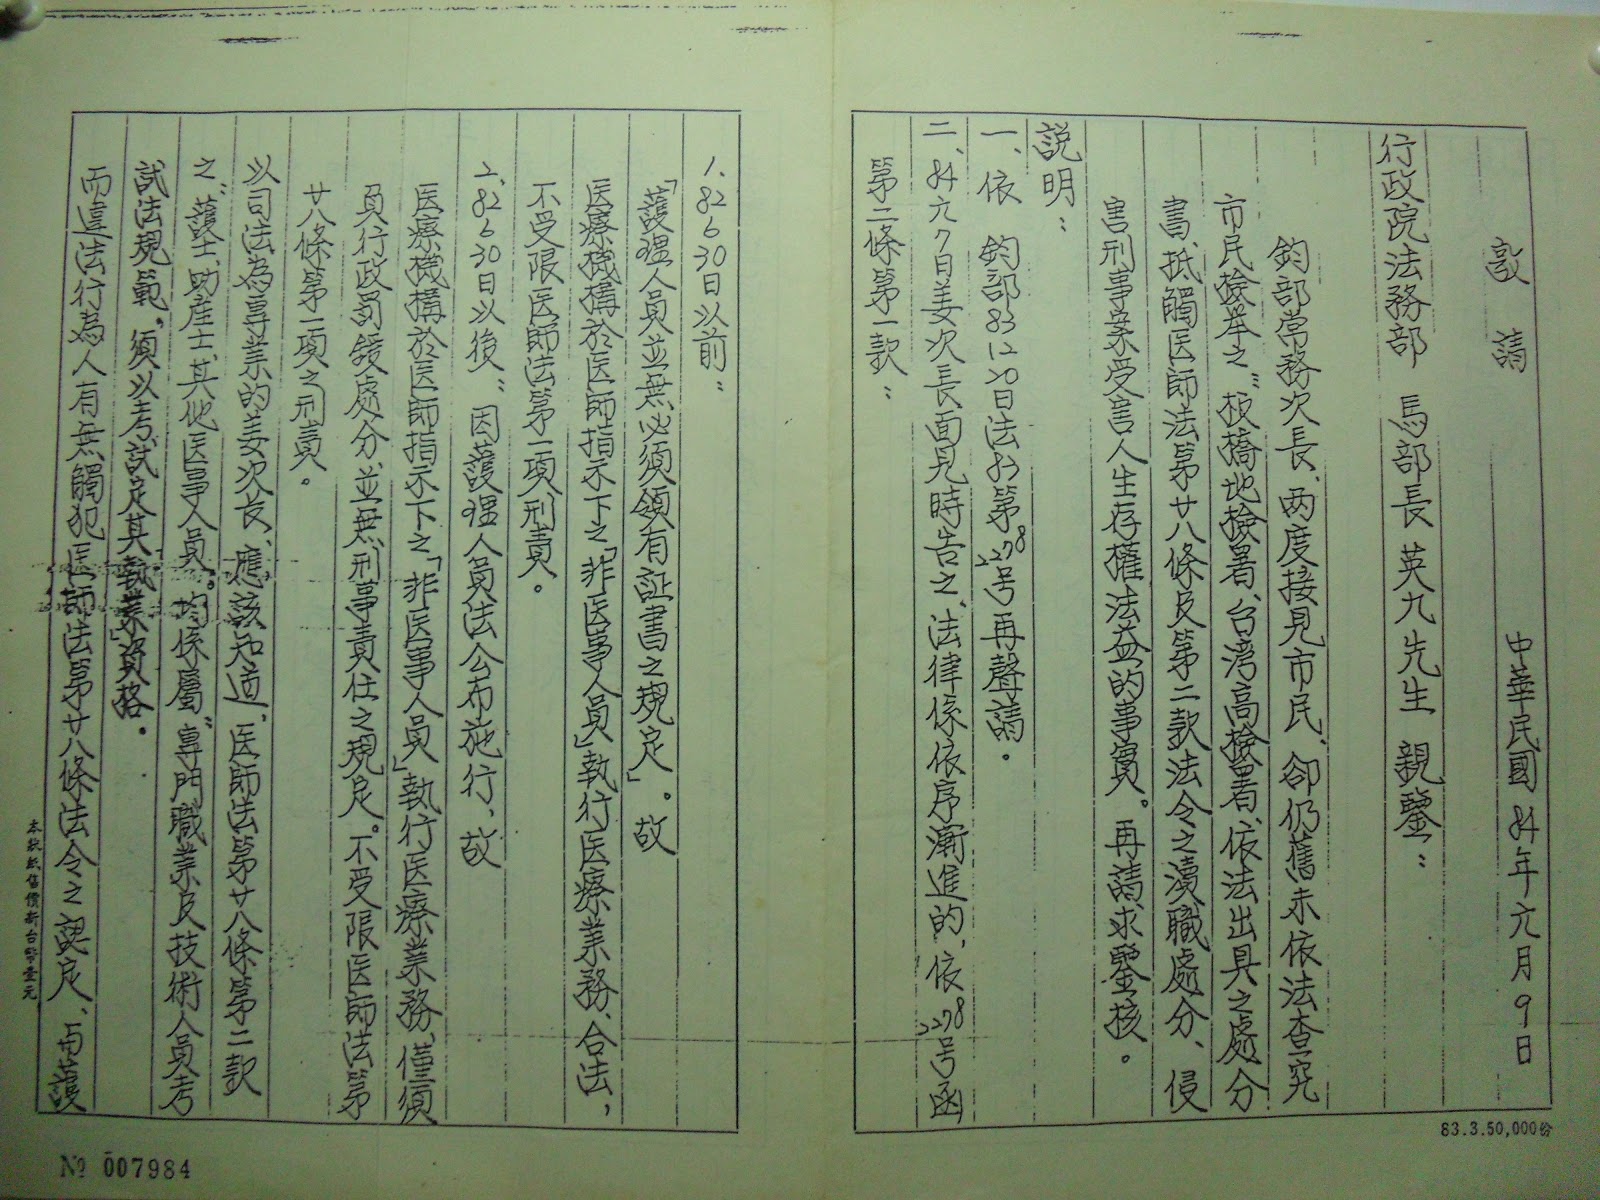 敬請　中華民國84年六月9日
行政院法務部　馬部長英九先生　親鑒：
鈞部常務次長、两度接見市民、卻仍舊未依法查究
市民檢举之〝板橋地檢署、台湾高檢署、依法出具之處分
書、抵觸医师法第廿八條及第二款法令之瀆職處分、侵
害刑事案受害人生存權法益的事實。再請求鑒核。
説明：
一、依　鈞部83 12 20日法83第2278号再聲請。
二、84六9日姜次長面見時告之、法律係依序漸進的、依2278号函
第二條第一款：
1、82 6 30日以前：
「護理人員並無必須領有証書之規定」。故
医療機構於医師指示下之「非医事人員」執行医療業務、合法，
不受限医師法第一項刑責。
2、82 6 30日以後：因護理人員法公布施行，故
医療機構於医師指示下之「非医事人員」執行医療業務、僅須
負行政罰鍰處分、並無刑事責任之規定。不受限医師法第
廿八條第一項之刑責。
以司法為專業的姜次長、應該知道、医師法第廿八條第二款
之〝護士、助産士、其他医事人員。均係屬〝專門職業及技術人員考
試法規範，須以考試定其「執業資格。
而違法行為人有無觸犯医師法第廿八條法令之認定、与護
本狀紙售價新台幣壹元
83.3.50,000份
№ 007984